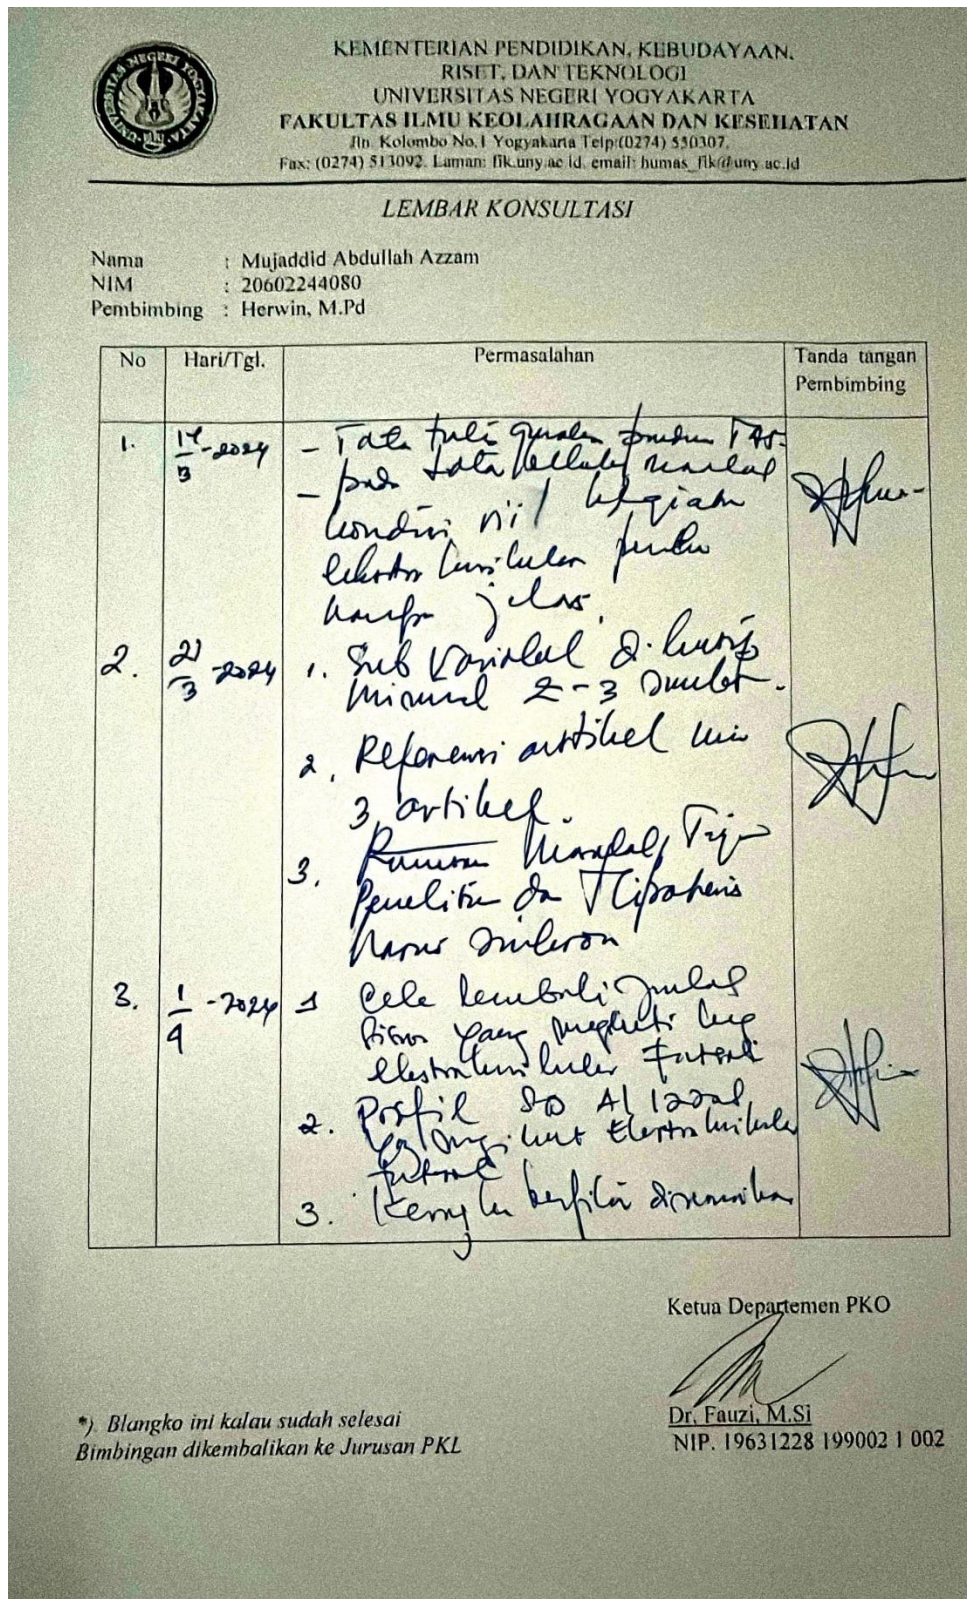 UNIVERSITAS NEGERI YOGYAKARTA
KEMENTERIAN PENDIDIKAN, KEBUDAYAAN,
RISET, DAN TEKNOLOGI
UNIVERSITAS NEGERI YOGYAKARTA
FAKULTAS ILMU KEOLAHRAGAAN DAN KESEHATAN
Jln. Kolombo No.1 Yogyakarta Telp:(0274) 550307,
Fax: (0274) 513092. Laman: fik.uny.ac.id. email: humas_fik@uny.ac.id
LEMBAR KONSULTASI
Nama : Mujaddid Abdullah Azzam
NIM : 20602244080
Pembimbing : Herwin, M.Pd
No Hari/Tgl. Permasalahan Tanda tangan
Pembimbing
1. 14/3 -2024 - Tata tulis gunakan panduan TAS
- pada latar belakang masalah
kondisi riil kegiatan
ekstra kurikuler
harus jelas
2. 21/3 -2024 1. Sub Variabel
minimal 2-3 sumber.
2. Referensi artikel min
3 artikel.
3. Rumusan Masalah, Tujuan
Penelitian dan Hipotesis
harus sinkron
3. 1/4 -2024 1 Cek kembali jumlah
siswa yang mengikuti keg
ekstrakurikuler Futsal
2. Profil SD Al Izzah
ekstrakurikuler
futsal
3. Kerangka berfikir disesuaikan
Ketua Departemen PKO
Dr. Fauzi, M.Si
NIP. 19631228 199002 1 002
*) Blangko ini kalau sudah selesai
Bimbingan dikembalikan ke Jurusan PKL